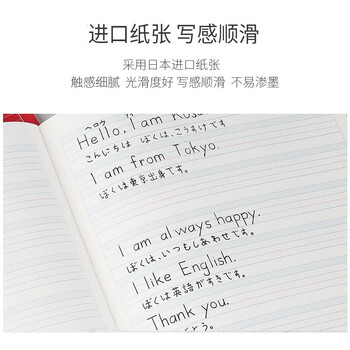 进口纸张 写感顺滑
采用日本进口纸张
触感细腻 光滑度好 写感顺滑 不易渗墨
ヘロウ
Hello, I am Kosu
こんにちは ぼくは、こうすけです
I am from Tokyo.
ぼくは東京出身です。
I am always happy.
ぼくは、いつもしあわせです。
I like English.
ぼくは英語がすきです。
Thank you.
とう。